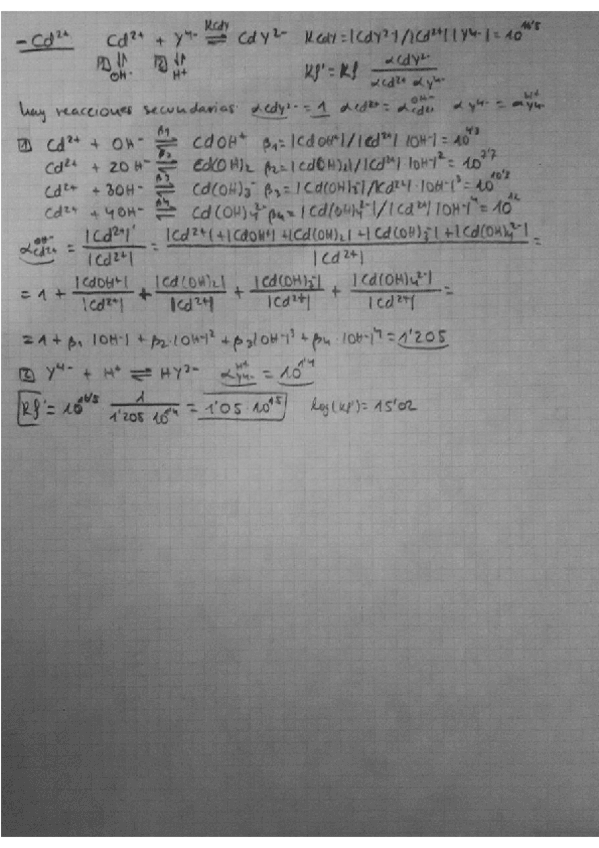 - Cd²⁺ Cd²⁺ + Y⁴⁻ ⇌ CdY²⁻ KCdY = |CdY²⁻|/|Cd²⁺||Y⁴⁻| = 10^16'5
KCdY
1 ⇅ OH⁻ 2 ⇅ H⁺ Kf' = Kf αCdY²⁻ / αCd²⁺ αY⁴⁻
hay reacciones secundarias αCdY²⁻ = 1 αCd²⁺ = α^OH⁻ Cd²⁺ αY⁴⁻ = α^H⁺ Y⁴⁻
1 Cd²⁺ + OH⁻ ⇌ CdOH⁺ β₁ = |CdOH⁺|/|Cd²⁺| |OH⁻| = 10^4'3
Cd²⁺ + 2OH⁻ ⇌ Cd(OH)₂ β₂ = |Cd(OH)₂|/|Cd²⁺| |OH⁻|² = 10^7'7
Cd²⁺ + 3OH⁻ ⇌ Cd(OH)₃⁻ β₃ = |Cd(OH)₃⁻|/|Cd²⁺|·|OH⁻|³ = 10^10'3
Cd²⁺ + 4OH⁻ ⇌ Cd(OH)₄²⁻ β₄ = |Cd(OH)₄²⁻|/|Cd²⁺| |OH⁻|⁴ = 10^12
α^OH⁻ Cd²⁺ = |Cd²⁺|' / |Cd²⁺| = |Cd²⁺| + |CdOH⁺| + |Cd(OH)₂| + |Cd(OH)₃⁻| + |Cd(OH)₄²⁻| / |Cd²⁺| =
= 1 + |CdOH⁺| / |Cd²⁺| + |Cd(OH)₂| / |Cd²⁺| + |Cd(OH)₃⁻| / |Cd²⁺| + |Cd(OH)₄²⁻| / |Cd²⁺| =
= 1 + β₁ |OH⁻| + β₂·|OH⁻|² + β₃|OH⁻|³ + β₄·|OH⁻|⁴ = 1'205
2 Y⁴⁻ + H⁺ ⇌ HY³⁻ α^H⁺ Y⁴⁻ = 10^1'4
Kf' = 10^16'5 1 / 1'205·10^1'4 = 1'05·10^15 log(Kf') = 15'02